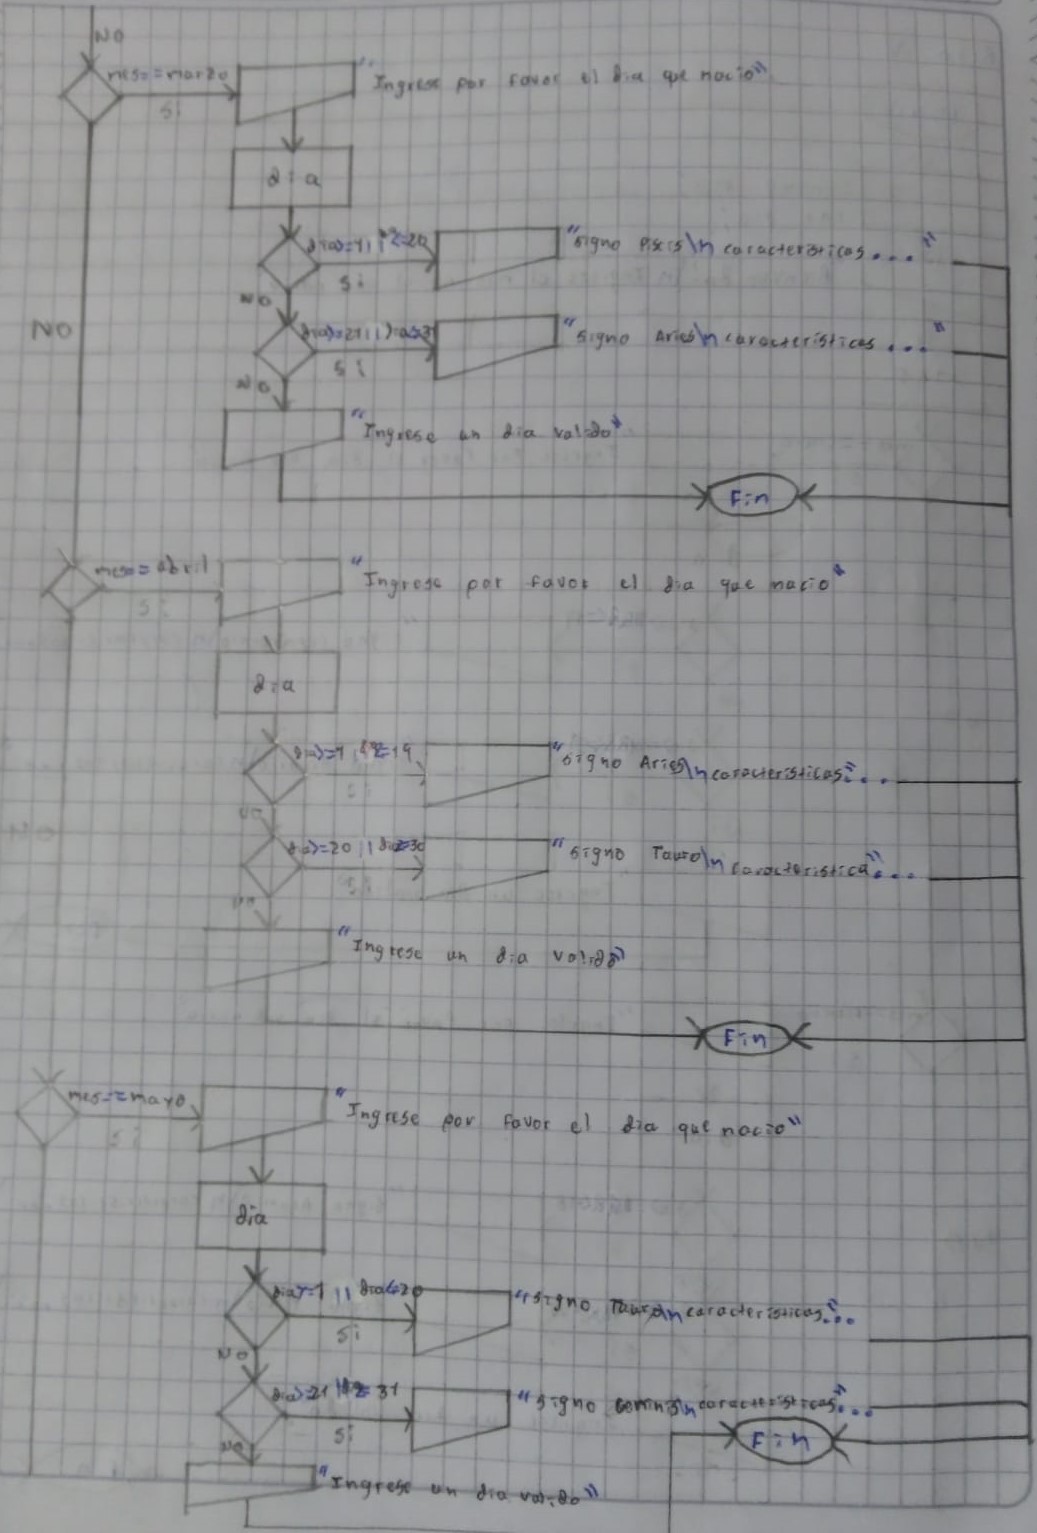 NO
mes==marzo
"Ingrese por favor el dia que nacio"
Si
dia
"signo Piscis\n caracteristicas..."
Si
NO
NO
"signo Aries\n caracteristicas ..."
Si
NO
"Ingrese un dia valido"
Fin
mes==abril
"Ingrese por favor el dia que nacio"
Si
dia
"signo Aries\n caracteristicas"...
Si
NO
dia>=20 || dia<=30
"signo Tauro\n caracteristica"...
Si
NO
"Ingrese un dia valido"
Fin
mes==mayo
"Ingrese por favor el dia que nacio"
Si
dia
dia>=1 || dia<=20
"signo Tauro\n caracteristicas...
Si
NO
"signo Geminis\n caracteristicas"...
Si
Fin
NO
"Ingrese un dia valido"